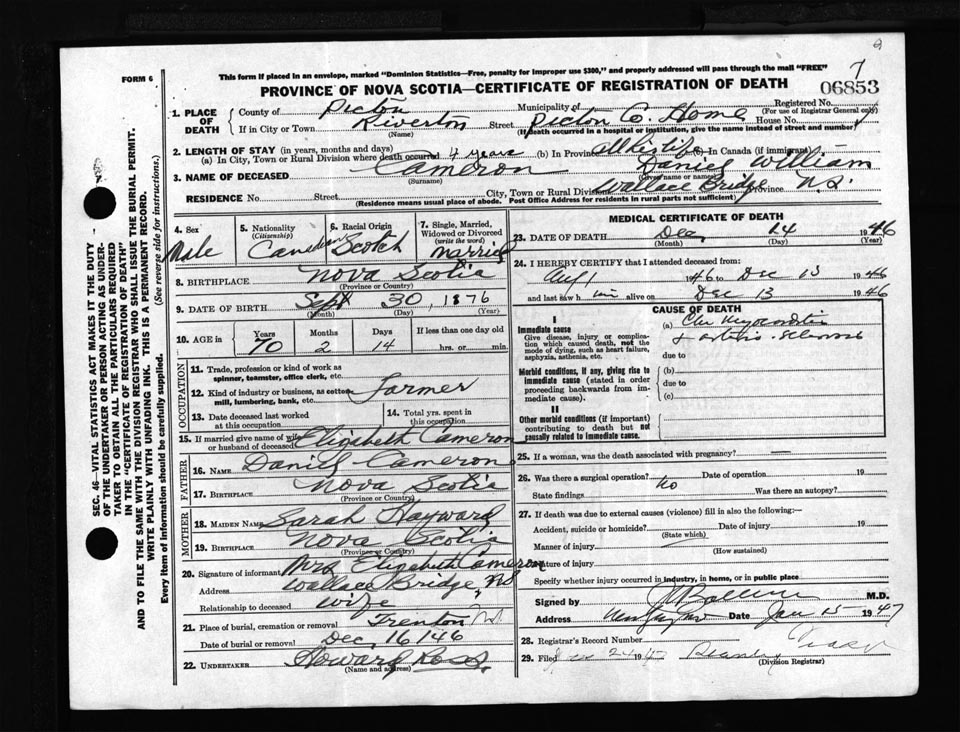 This form if placed in an envelope, marked "Dominion Statistics—Free, penalty for improper use $300," and properly addressed will pass through the mail "FREE"
FORM 6
7
PROVINCE OF NOVA SCOTIA—CERTIFICATE OF REGISTRATION OF DEATH
06853
1. PLACE OF DEATH
County of Pictou
Municipality of
Registered No.
(For use of Registrar General only)
If in City or Town Riverton (Name) Street Pictou Co. Home House No.
(If death occurred in a hospital or institution, give the name instead of street and number)
2. LENGTH OF STAY (in years, months and days)
(a) In City, Town or Rural Division where death occurred 4 years (b) In Province all his life (c) In Canada (if immigrant)
3. NAME OF DECEASED Cameron (Surname) Daniel William (Given name or names)
RESIDENCE No. Street City, Town or Rural Division Wallace Bridge Province N.S.
(Residence means usual place of abode. Post Office Address for residents in rural parts not sufficient)
4. Sex Male
5. Nationality (Citizenship) Canadian
6. Racial Origin Scotch
7. Single, Married, Widowed or Divorced (write the word) Married
8. BIRTHPLACE Nova Scotia
(Province or Country)
9. DATE OF BIRTH Sept 30, 1876
(Month) (Day) (Year)
10. AGE Years 70 Months 2 Days 14 If less than one day old hrs. or min.
OCCUPATION
11. Trade, profession or kind of work as spinner, teamster, office clerk, etc.
12. Kind of industry or business, as cotton mill, lumbering, bank, etc. Farmer
13. Date deceased last worked at this occupation
14. Total yrs. spent in this occupation
15. If married give name of wife or husband of deceased Elizabeth Cameron
FATHER
16. NAME Daniel Cameron
17. BIRTHPLACE Nova Scotia
(Province or Country)
MOTHER
18. MAIDEN NAME Sarah Hayward
19. BIRTHPLACE Nova Scotia
(Province or Country)
20. Signature of informant Mrs Elizabeth Cameron
Address Wallace Bridge, NS
Relationship to deceased wife
21. Place of burial, cremation or removal Trenton N.S.
Date of burial or removal Dec 16/46
22. UNDERTAKER Howard Ross
(Name and address)
MEDICAL CERTIFICATE OF DEATH
23. DATE OF DEATH Dec 14 1946
(Month) (Day) (Year)
24. I HEREBY CERTIFY that I attended deceased from:
Aug 1 1946 to Dec 13 1946
and last saw him alive on Dec 13 1946
CAUSE OF DEATH
I
Immediate cause
Give disease, injury or complication which caused death, not the mode of dying, such as heart failure, asphyxia, asthenia, etc.
(a) Chr Myocarditis
& arterio-sclerosis
due to
Morbid conditions, if any, giving rise to immediate cause (stated in order proceeding backwards from immediate cause).
(b)
due to
(c)
II
Other morbid conditions (if important) contributing to death but not causally related to immediate cause.
25. If a woman, was the death associated with pregnancy?
26. Was there a surgical operation? no Date of operation 19
State findings Was there an autopsy?
27. If death was due to external causes (violence) fill in also the following:—
Accident, suicide or homicide? Date of injury 19
(State which)
Manner of injury
(How sustained)
Nature of injury
Specify whether injury occurred in industry, in home, or in public place
Signed by M.D.
Address Date Jan 15 1947
28. Registrar's Record Number
29. Filed 24 194
(Division Registrar)
SEC. 46—VITAL STATISTICS ACT MAKES IT THE DUTY
OF THE UNDERTAKER OR PERSON ACTING AS UNDER-
TAKER TO OBTAIN ALL THE PARTICULARS REQUIRED
IN THE "CERTIFICATE OF REGISTRATION OF DEATH"
AND TO FILE THE SAME WITH THE DIVISION REGISTRAR WHO SHALL ISSUE THE BURIAL PERMIT.
WRITE PLAINLY WITH UNFADING INK. THIS IS A PERMANENT RECORD.
Every item of information should be carefully supplied. (See reverse side for instructions.)